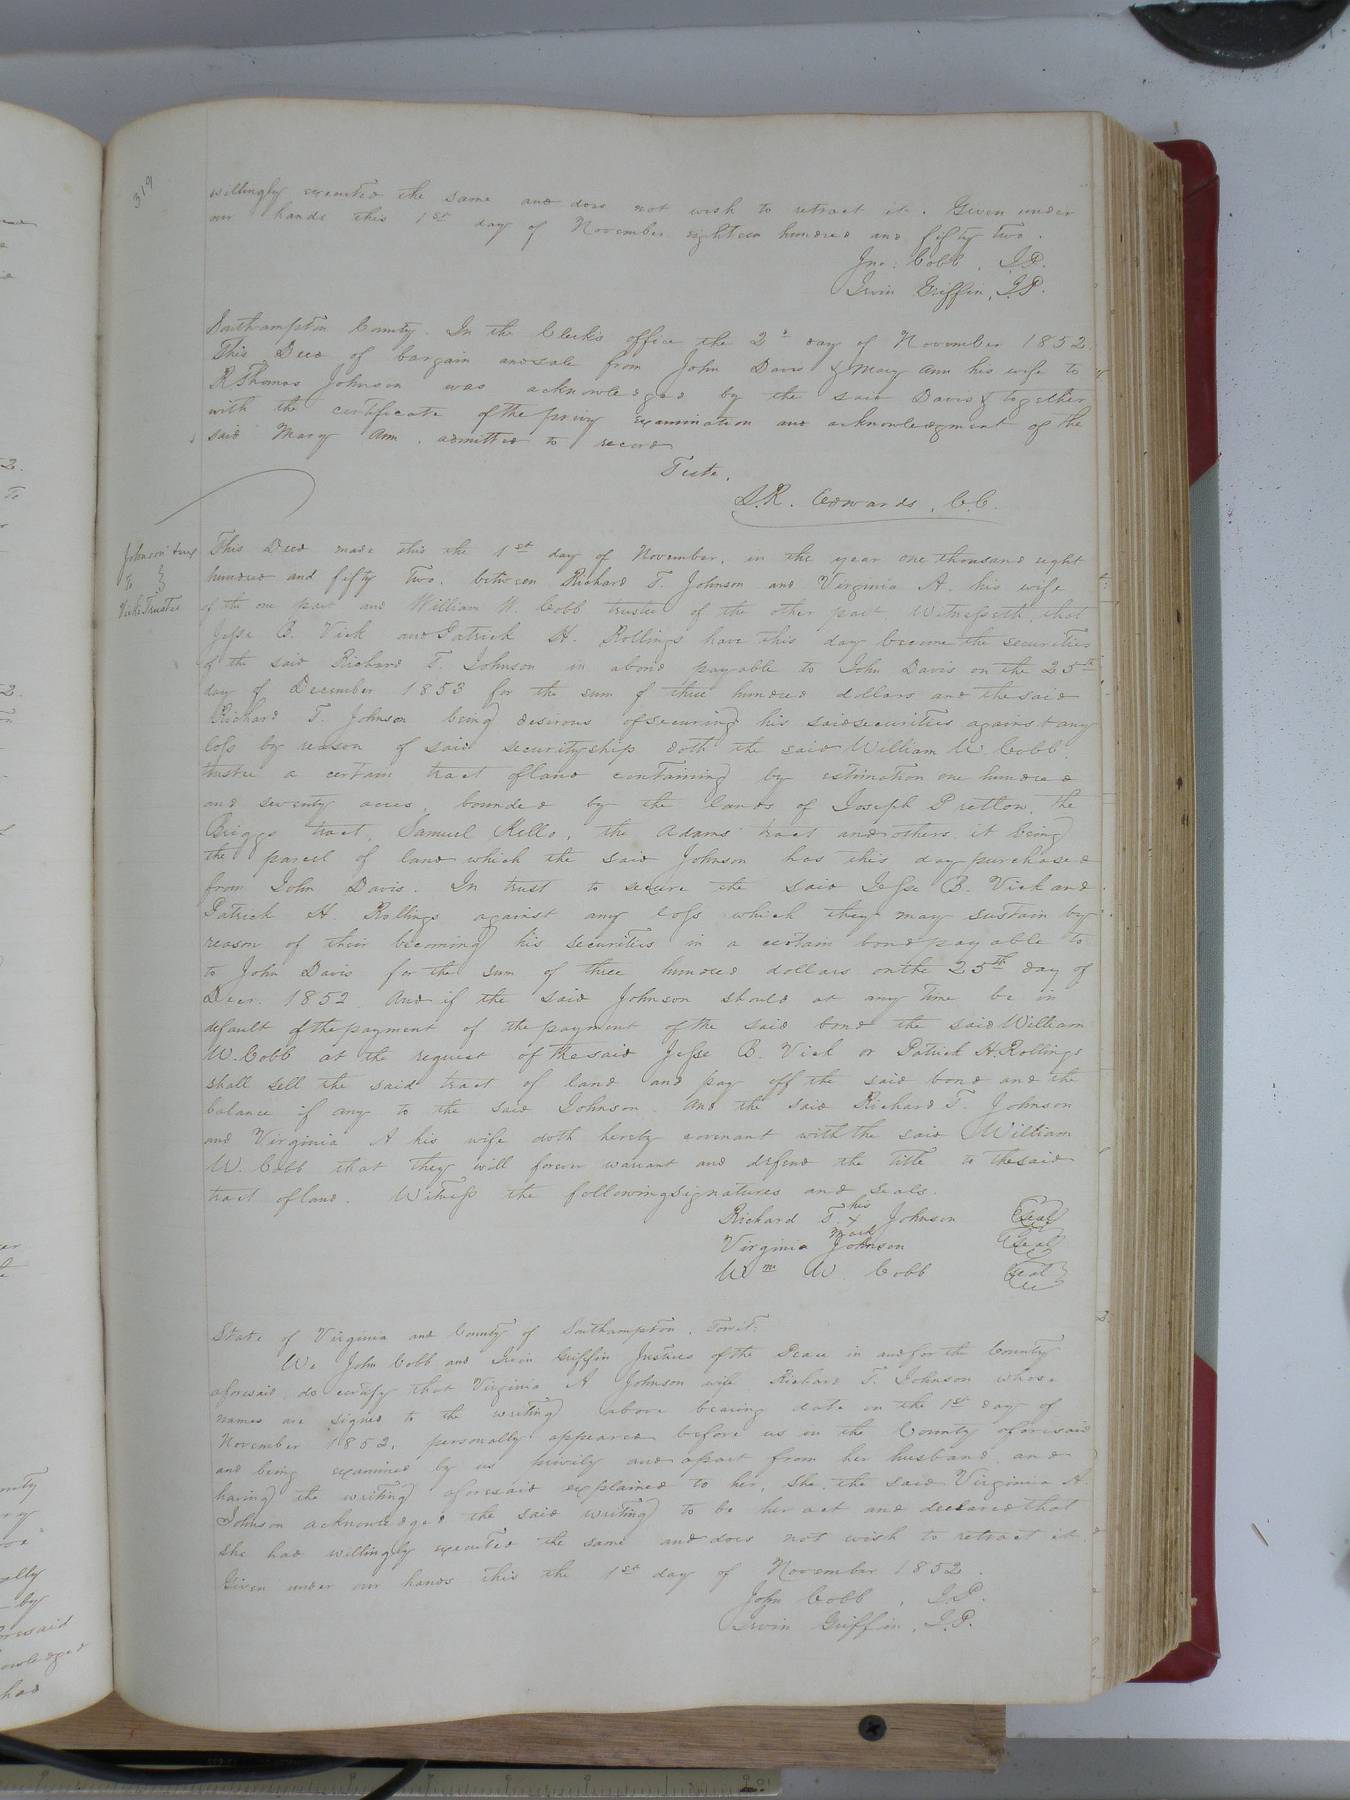 319
willingly executed the same and does not wish to retract it. Given under
our hands this 1st day of November eighteen hundred and fifty two.
Jno. Cobb, J.P.
Irvin Griffin, J.P.
Southampton County. In the Clerk's office the 2d day of November 1852.
This Deed of bargain and sale from John Davis & Mary Ann his wife to
R Thomas Johnson was acknowledged by the said Davis & together
with the certificate of the privy examination and acknowledgment of the
said Mary Ann, admitted to record
Teste,
L.R. Edwards, C.C.
Johnson &
To
Vick Trustee
This Deed made this the 1st day of November, in the year one thousand eight
hundred and fifty two, between Richard T. Johnson and Virginia A. his wife
of the one part and William W. Cobb trustee of the other part Witnesseth, that
Jesse B. Vick and Patrick H. Rollings have this day become the securities
of the said Richard T. Johnson in a bond payable to John Davis on the 25th
day of December 1853 for the sum of three hundred dollars and the said
Richard T. Johnson being desirous of securing his said securities against any
loss by reason of said securityship doth the said William W Cobb
trustee a certain tract of land containing by estimation one hundred
and seventy acres, bounded by the lands of Joseph Pretlow, the
Briggs tract, Samuel Kello, the Adams tract and others it being
the parcel of land which the said Johnson has this day purchased
from John Davis. In trust to secure the said Jesse B. Vick and
Patrick H. Rollings against any loss which they may sustain by
reason of their becoming his securities in a certain bond payable to
to John Davis for the sum of three hundred dollars on the 25th day of
Decr. 1852 And if the said Johnson should at any time be in
default of the payment of the payment of the said bond the said William
W. Cobb at the request of the said Jesse B. Vick or Patrick H. Rollings
shall sell the said tract of land and pay off the said bond and the
balance if any to the said Johnson. And the said Richard T. Johnson
and Virginia A his wife doth hereby covenant with the said William
W. Cobb that they will forever warrant and defend the title to the said
tract of land. Witness the following signatures and seals.
his
Richard T. x Johnson Seal
mark
Virginia Johnson Seal
Wm W. Cobb Seal
State of Virginia and County of Southampton, Towit:
We John Cobb and Irvin Griffin Justices of the Peace in and for the County
aforesaid, do certify that Virginia A Johnson wife Richard T. Johnson whose
names are signed to the writing above bearing date on the 1st day of
November 1852, personally appeared before us in the County aforesaid
and being examined by us privily and apart from her husband, and
having the writing aforesaid explained to her, she the said Virginia A
Johnson acknowledged the said writing to be her act and declared that
she had willingly executed the same and does not wish to retract it.
Given under our hands this the 1st day of November 1852.
John Cobb, J.P.
Irvin Griffin, J.P.